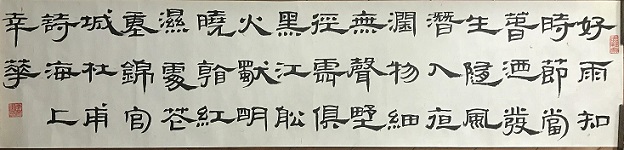 好雨知
時節當
萅迺發
生隨風
潛入夜
潤物細
無聲野
徑雲俱
黑江船
火明
曉紅
濕處花
重錦官
城杜甫
詩海上
辛華